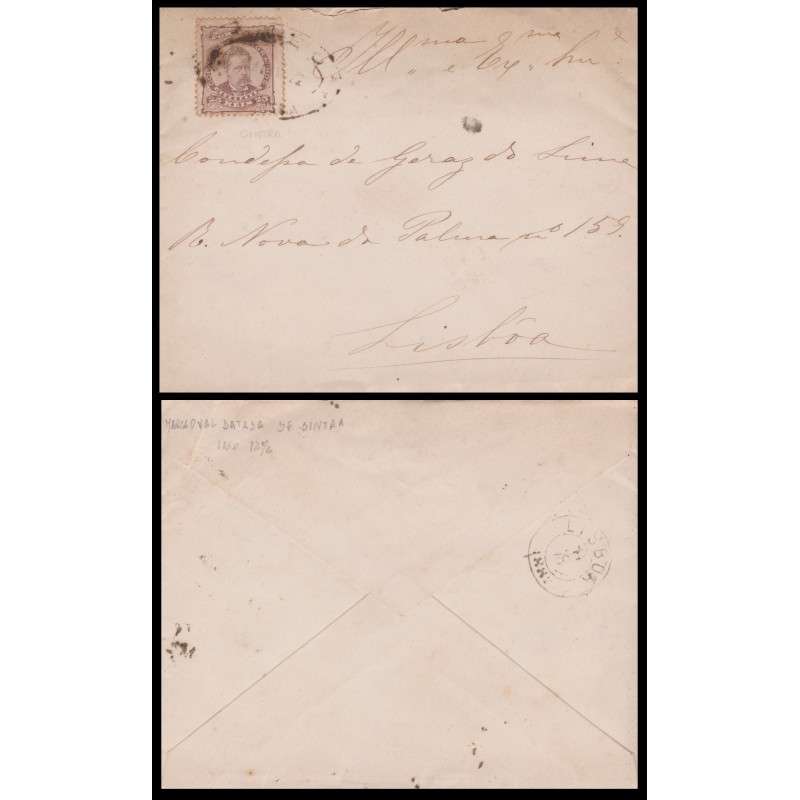 25 REIS 25
CINTRA
Illma e Exma Snra
Condessa de Geraz do Lima
R. Nova da Palma nº 159.
Lisbôa
MARCA OVAL DATADA DE SINTRA
12½
LISBOA